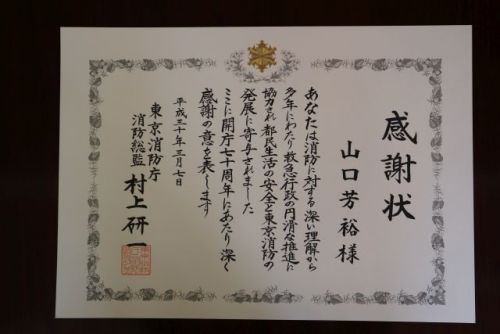 感謝状
山口芳裕様
あなたは消防に対する深い理解から
多年にわたり救急行政の円滑な推進に
協力され都民生活の安全と東京消防の
発展に寄与されました
ここに開庁七十周年にあたり深く
感謝の意を表します
平成三十年三月七日
東京消防庁
消防総監 村上研一